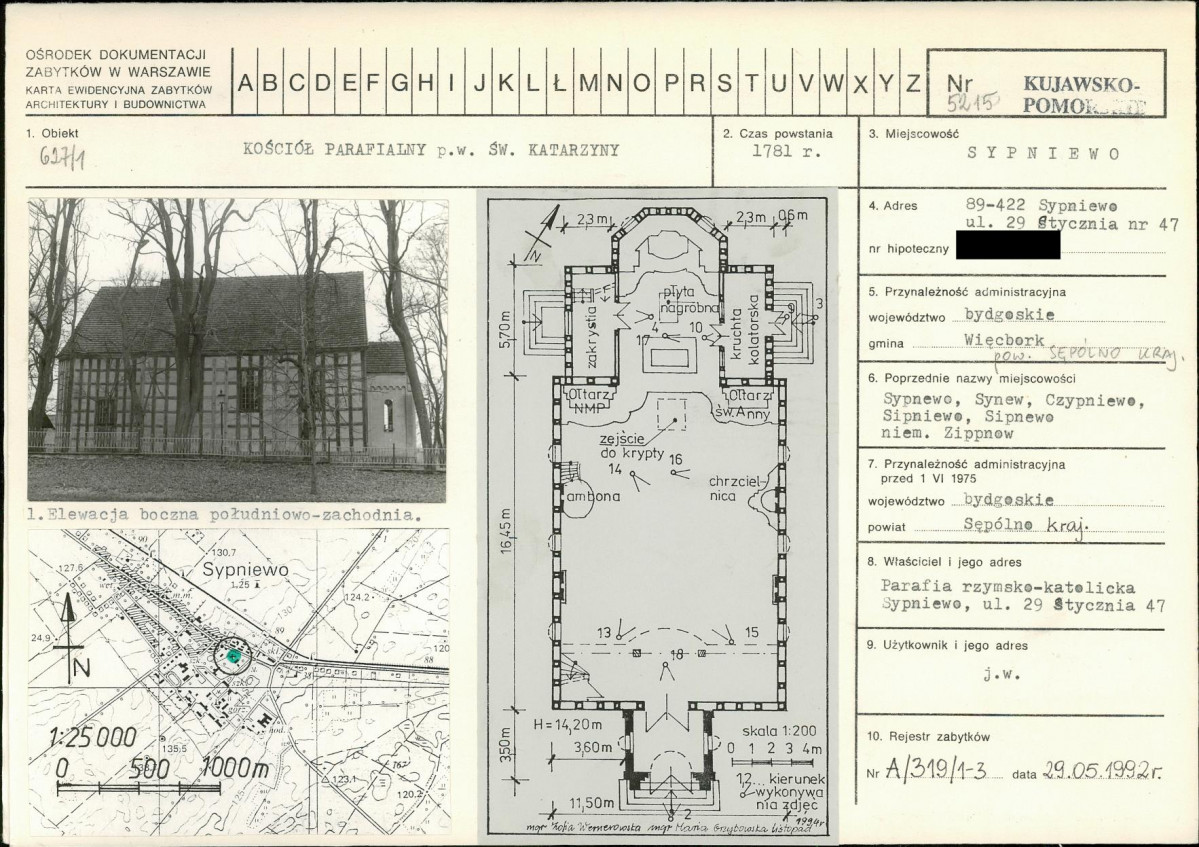 OŚRODEK DOKUMENTACJI
ZABYTKÓW W WARSZAWIE
KARTA EWIDENCYJNA ZABYTKÓW
ARCHITEKTURY I BUDOWNICTWA
A B C D E F G H I J K L Ł M N O P R S T U V W X Y Z
Nr
5215
KUJAWSKO-
POMORSKIE
1. Obiekt
627/1
KOŚCIÓŁ PARAFIALNY p.w. ŚW. KATARZYNY
2. Czas powstania
1781 r.
3. Miejscowość
SYPNIEWO
4. Adres
89-422 Sypniewo
ul. 29 Stycznia nr 47
nr hipoteczny
5. Przynależność administracyjna
województwo bydgoskie
gmina Więcbork
pow. SĘPÓLNO KRAJ.
6. Poprzednie nazwy miejscowości
Sypnewo, Synew, Czypniewo,
Sipniewo, Sipnewo
niem. Zippnow
7. Przynależność administracyjna
przed 1 VI 1975
województwo bydgoskie
powiat Sępólno kraj.
8. Właściciel i jego adres
Parafia rzymsko-katolicka
Sypniewo, ul. 29 Stycznia 47
9. Użytkownik i jego adres
j.w.
10. Rejestr zabytków
Nr A/319/1-3 data 29.05.1992r.
1.Elewacja boczna południowo-zachodnia.
90
130,7
Sypniewo
1,25
127.6
m.m.
124.2
24,9
N
89
120
88
38
1:25 000
135,5
0 500 1000m
123,1
120,2
N
2,3m
2,3m
0,6m
płyta
nagrobna
zakrystia
kruchta
kolatorska
4
17
10
9
3
5,70m
Ołtarz
NMP
Ołtarz
św. Anny
zejście
do krypty
14
16
ambona
chrzciel-
nica
16,45m
13
15
18
H=14,20m
3,60m
3,50m
skala 1:200
0 1 2 3 4m
1,2... kierunek
wykonywa
nia zdjęć
11,50m
2
mgr Zofia Wernerowska mgr Maria Grzybowska listopad 1994r